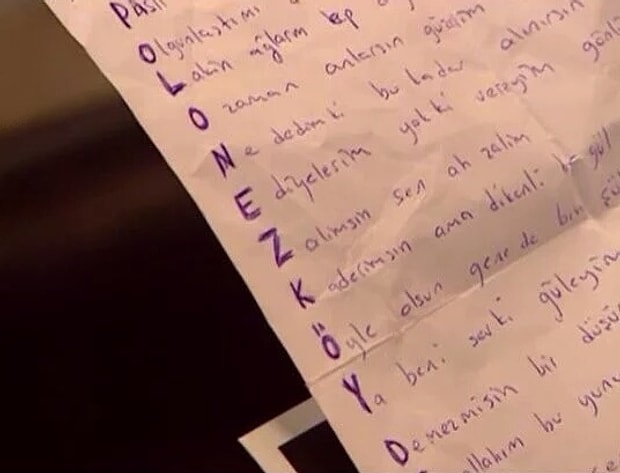 Pasl
Olgunlaştımı
Lakin ağlarım hep
O zaman anlarsın güzelim
Ne dedimki bu kadar alınırsın
Ediyelerim yokki vereyim gönl
Zalimsin sen ah zalim
Kaderimsin ama dikenli bir gül
Öyle olsun gene de bin gü
Ya beni sevki güleyim
Demezmisin bir düşün
allahım bu yunu